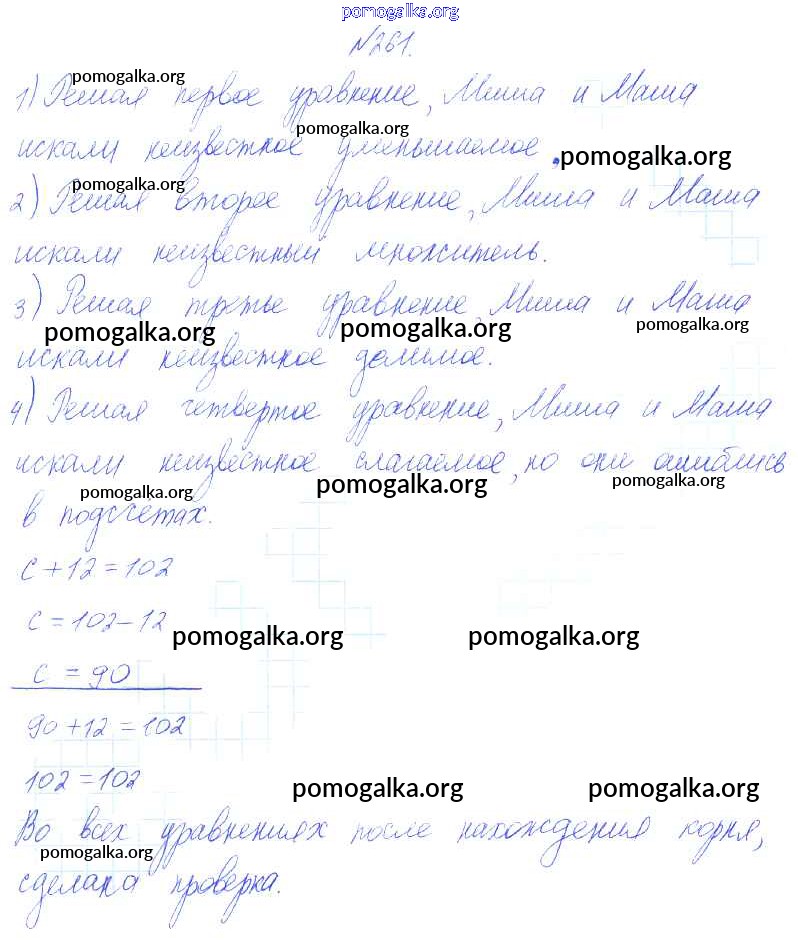 pomogalka.org
№261.
pomogalka.org
1) Решая первое уравнение, Миша и Маша
pomogalka.org
искали неизвестное уменьшаемое.
pomogalka.org
pomogalka.org
2) Решая второе уравнение, Миша и Маша
искали неизвестный множитель.
3) Решая третье уравнение, Миша и Маша
pomogalka.org pomogalka.org pomogalka.org
искали неизвестное делимое.
4) Решая четвертое уравнение, Миша и Маша
искали неизвестное слагаемое, но они ошиблись
pomogalka.org pomogalka.org pomogalka.org
в подсчётах.
c + 12 = 102
c = 102 - 12
pomogalka.org pomogalka.org
c = 90
90 + 12 = 102
102 = 102
pomogalka.org pomogalka.org
Во всех уравнениях после нахождения корня,
pomogalka.org
сделана проверка.